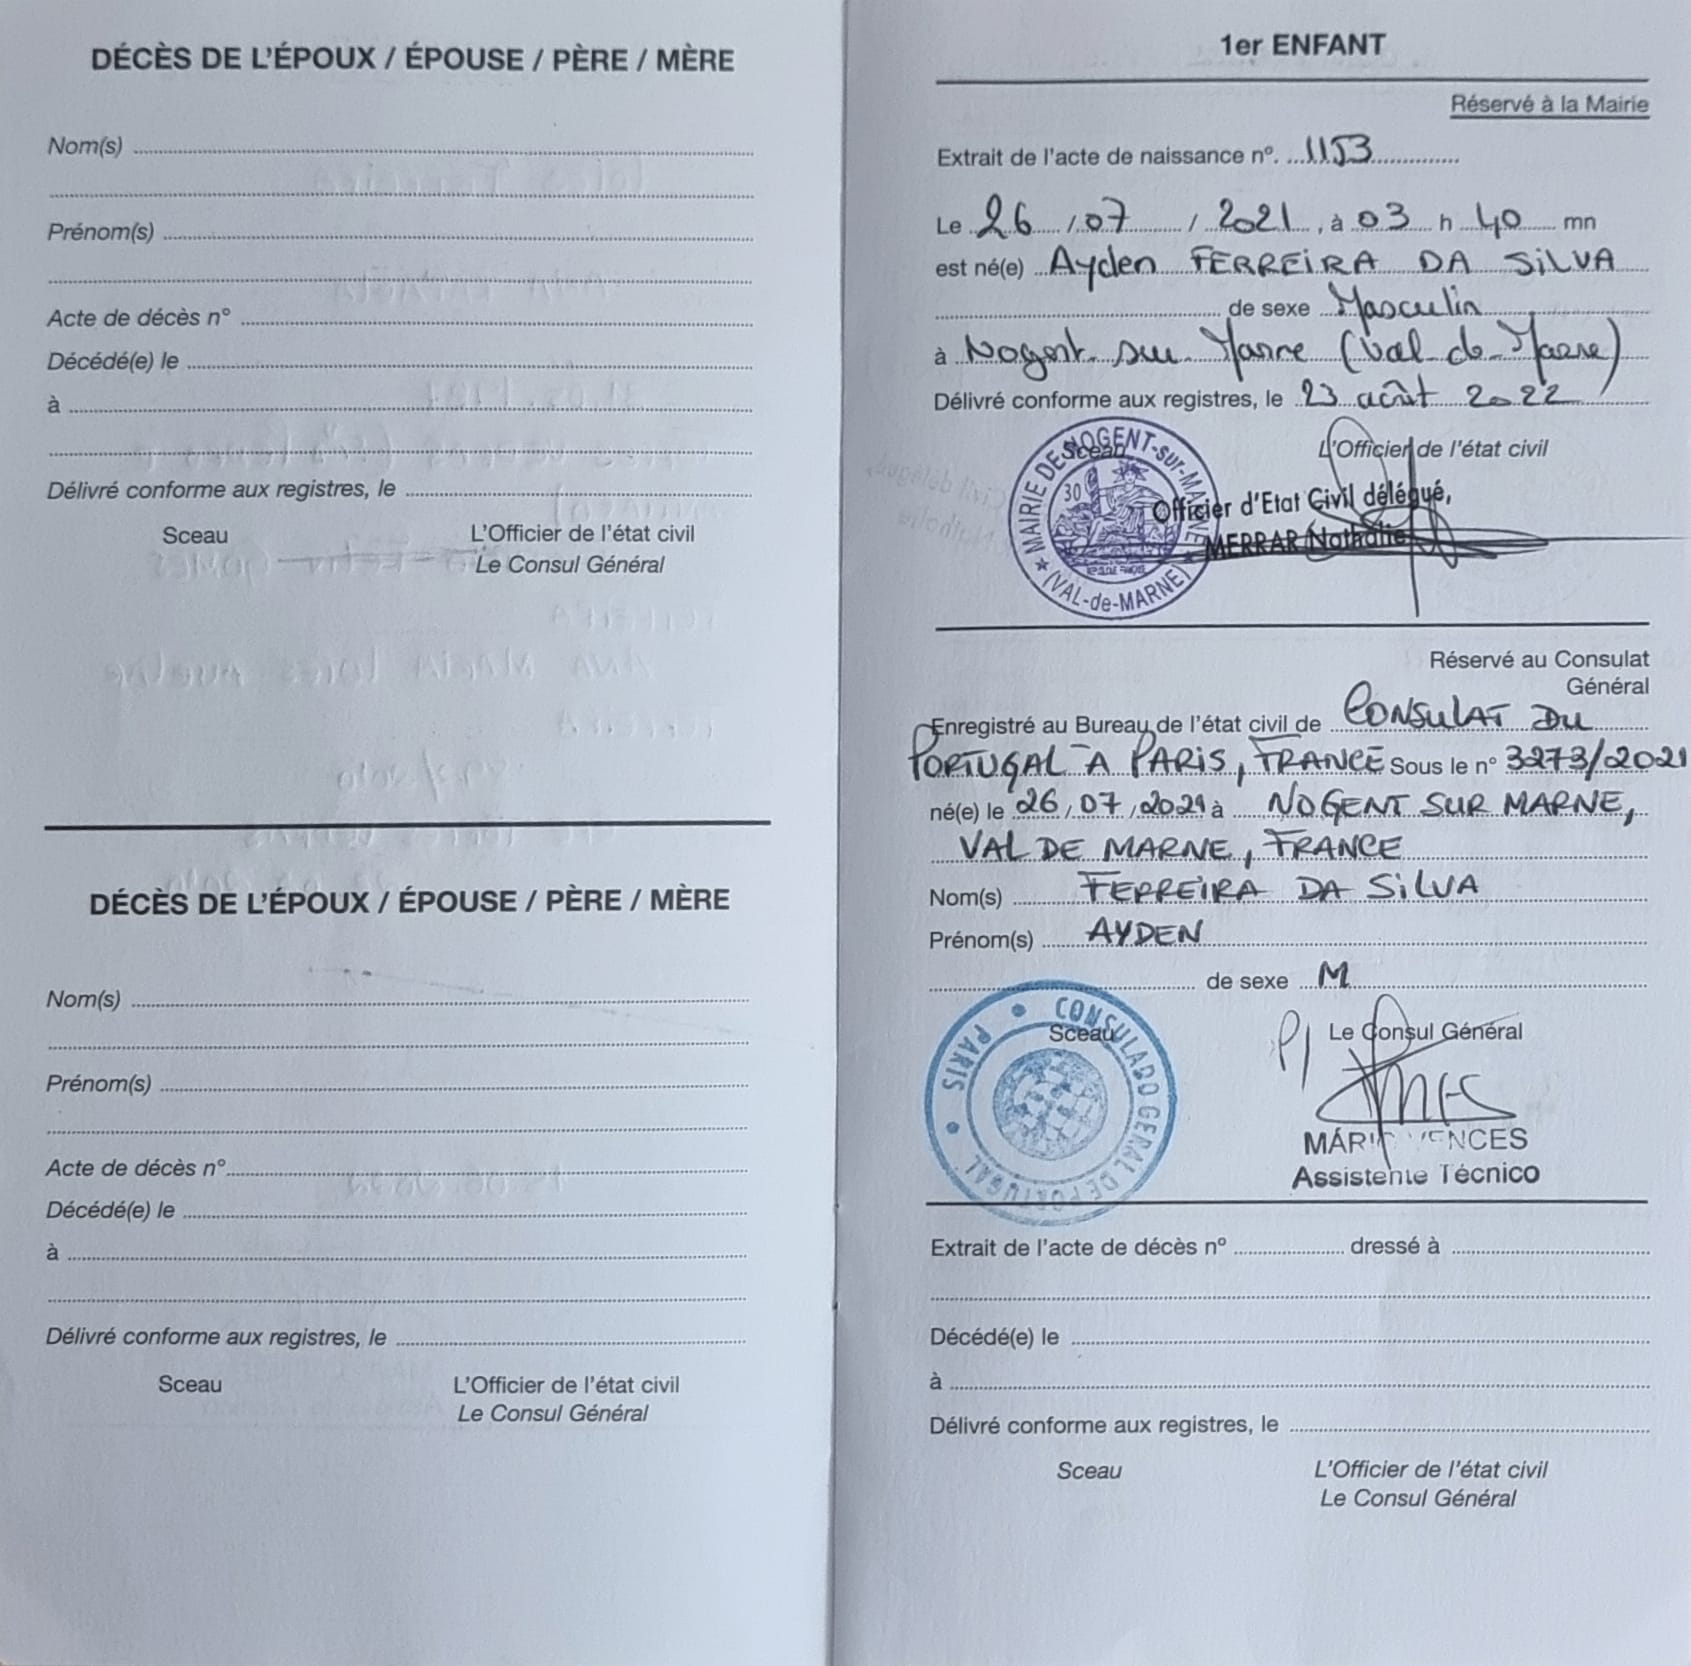 DÉCÈS DE L'ÉPOUX / ÉPOUSE / PÈRE / MÈRE
Nom(s)
Prénom(s)
Acte de décès n°
Décédé(e) le
à
Délivré conforme aux registres, le
Sceau
L'Officier de l'état civil
Le Consul Général
DÉCÈS DE L'ÉPOUX / ÉPOUSE / PÈRE / MÈRE
Nom(s)
Prénom(s)
Acte de décès n°
Décédé(e) le
à
Délivré conforme aux registres, le
Sceau
L'Officier de l'état civil
Le Consul Général
1er ENFANT
Réservé à la Mairie
Extrait de l'acte de naissance n°. 1153
Le 26 / 07 / 2021, à 03 h 40 mn
est né(e) Ayden FERREIRA DA SILVA
de sexe Masculin
à Nogent sur Marne (Val de Marne)
Délivré conforme aux registres, le 23 août 2022
Sceau
L'Officier de l'état civil
MAIRIE DE NOGENT-sur-MARNE
(VAL-de-MARNE)
30
Officier d'Etat Civil délégué,
MERRAR Nathalie
Réservé au Consulat
Général
Enregistré au Bureau de l'état civil de CONSULAT DU
PORTUGAL À PARIS, FRANCE Sous le n° 3273/2021
né(e) le 26 / 07 / 2021 à NOGENT SUR MARNE,
VAL DE MARNE, FRANCE
Nom(s) FERREIRA DA SILVA
Prénom(s) AYDEN
de sexe M
Sceau
CONSULADO GERAL DE PORTUGAL
PARIS
P/ Le Consul Général
Assistente Técnico
Extrait de l'acte de décès n° dressé à
Décédé(e) le
à
Délivré conforme aux registres, le
Sceau
L'Officier de l'état civil
Le Consul Général